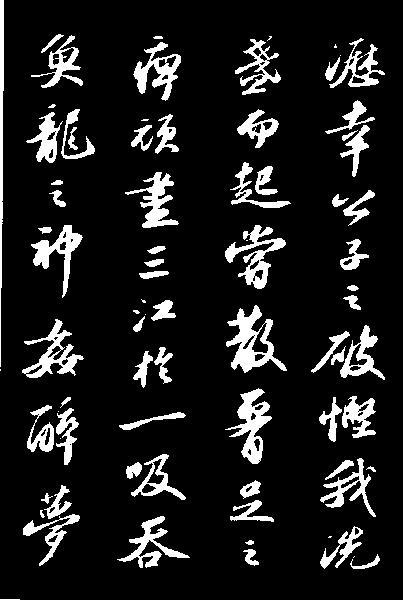 瀝幸公子之破慳我洗
盞而起嘗散腰足之
痺頑盡三江於一吸吞
魚龍之神姦醉夢